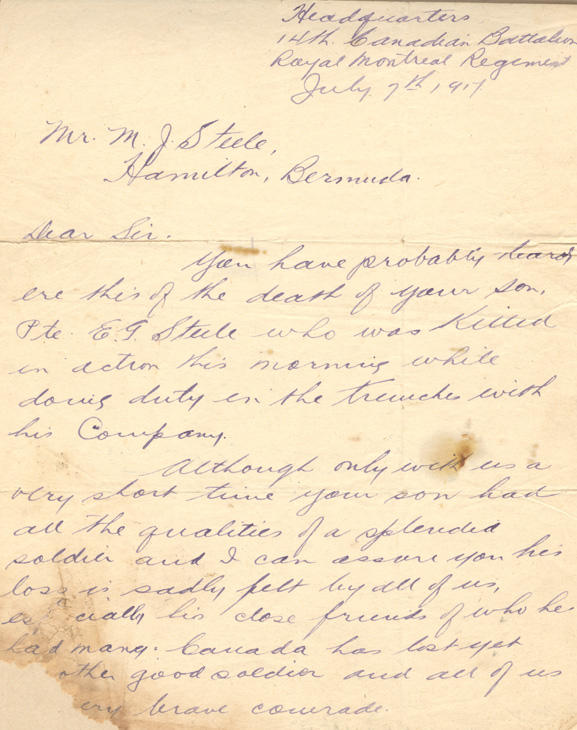 Headquarters
14th. Canadian Battalion
Royal Montreal Regiment
July 7th, 1917
Mr. M. J. Steele,
Hamilton, Bermuda.
Dear Sir.
You have probably heard
ere this of the death of your son,
Pte. E. G. Steele who was killed
in action this morning while
doing duty in the trenches with
his Company.
Although only with us a
very short time your son had
all the qualities of a splendid
soldier and I can assure you his
loss is sadly felt by all of us,
es cially his close friends of who he
had many. Canada has lost yet
other good soldier and all of us
ery brave comrade.